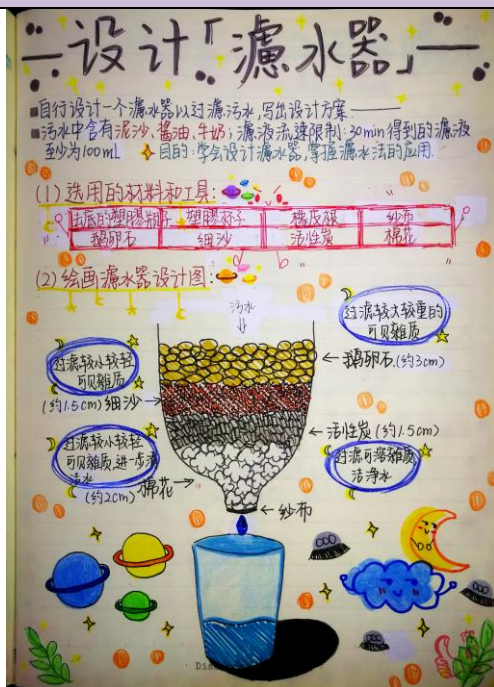 设计「濾水器」
自行设计一个濾水器以过濾污水,写出设计方案
污水中含有泥沙、酱油、牛奶;濾液流速限制:30min得到的濾液
至少为100mL 目的:学会设计濾水器,掌握濾水法的应用.
(1)选用的材料和工具:
去底的塑膠瓶子 塑膠杯子 橡皮根 纱布
鹅卵石 细沙 活性炭 棉花
(2)绘画濾水器设计图:
污水
过濾较大较重的
可见雜质
鹅卵石.(约3cm)
过濾较小较轻
可见雜质
(约1.5cm)细沙
活性炭(约1.5cm)
过濾较小较轻
可见雜质进一步清
洁水
过濾可溶雜质
洁净水
(约2cm)棉花
纱布